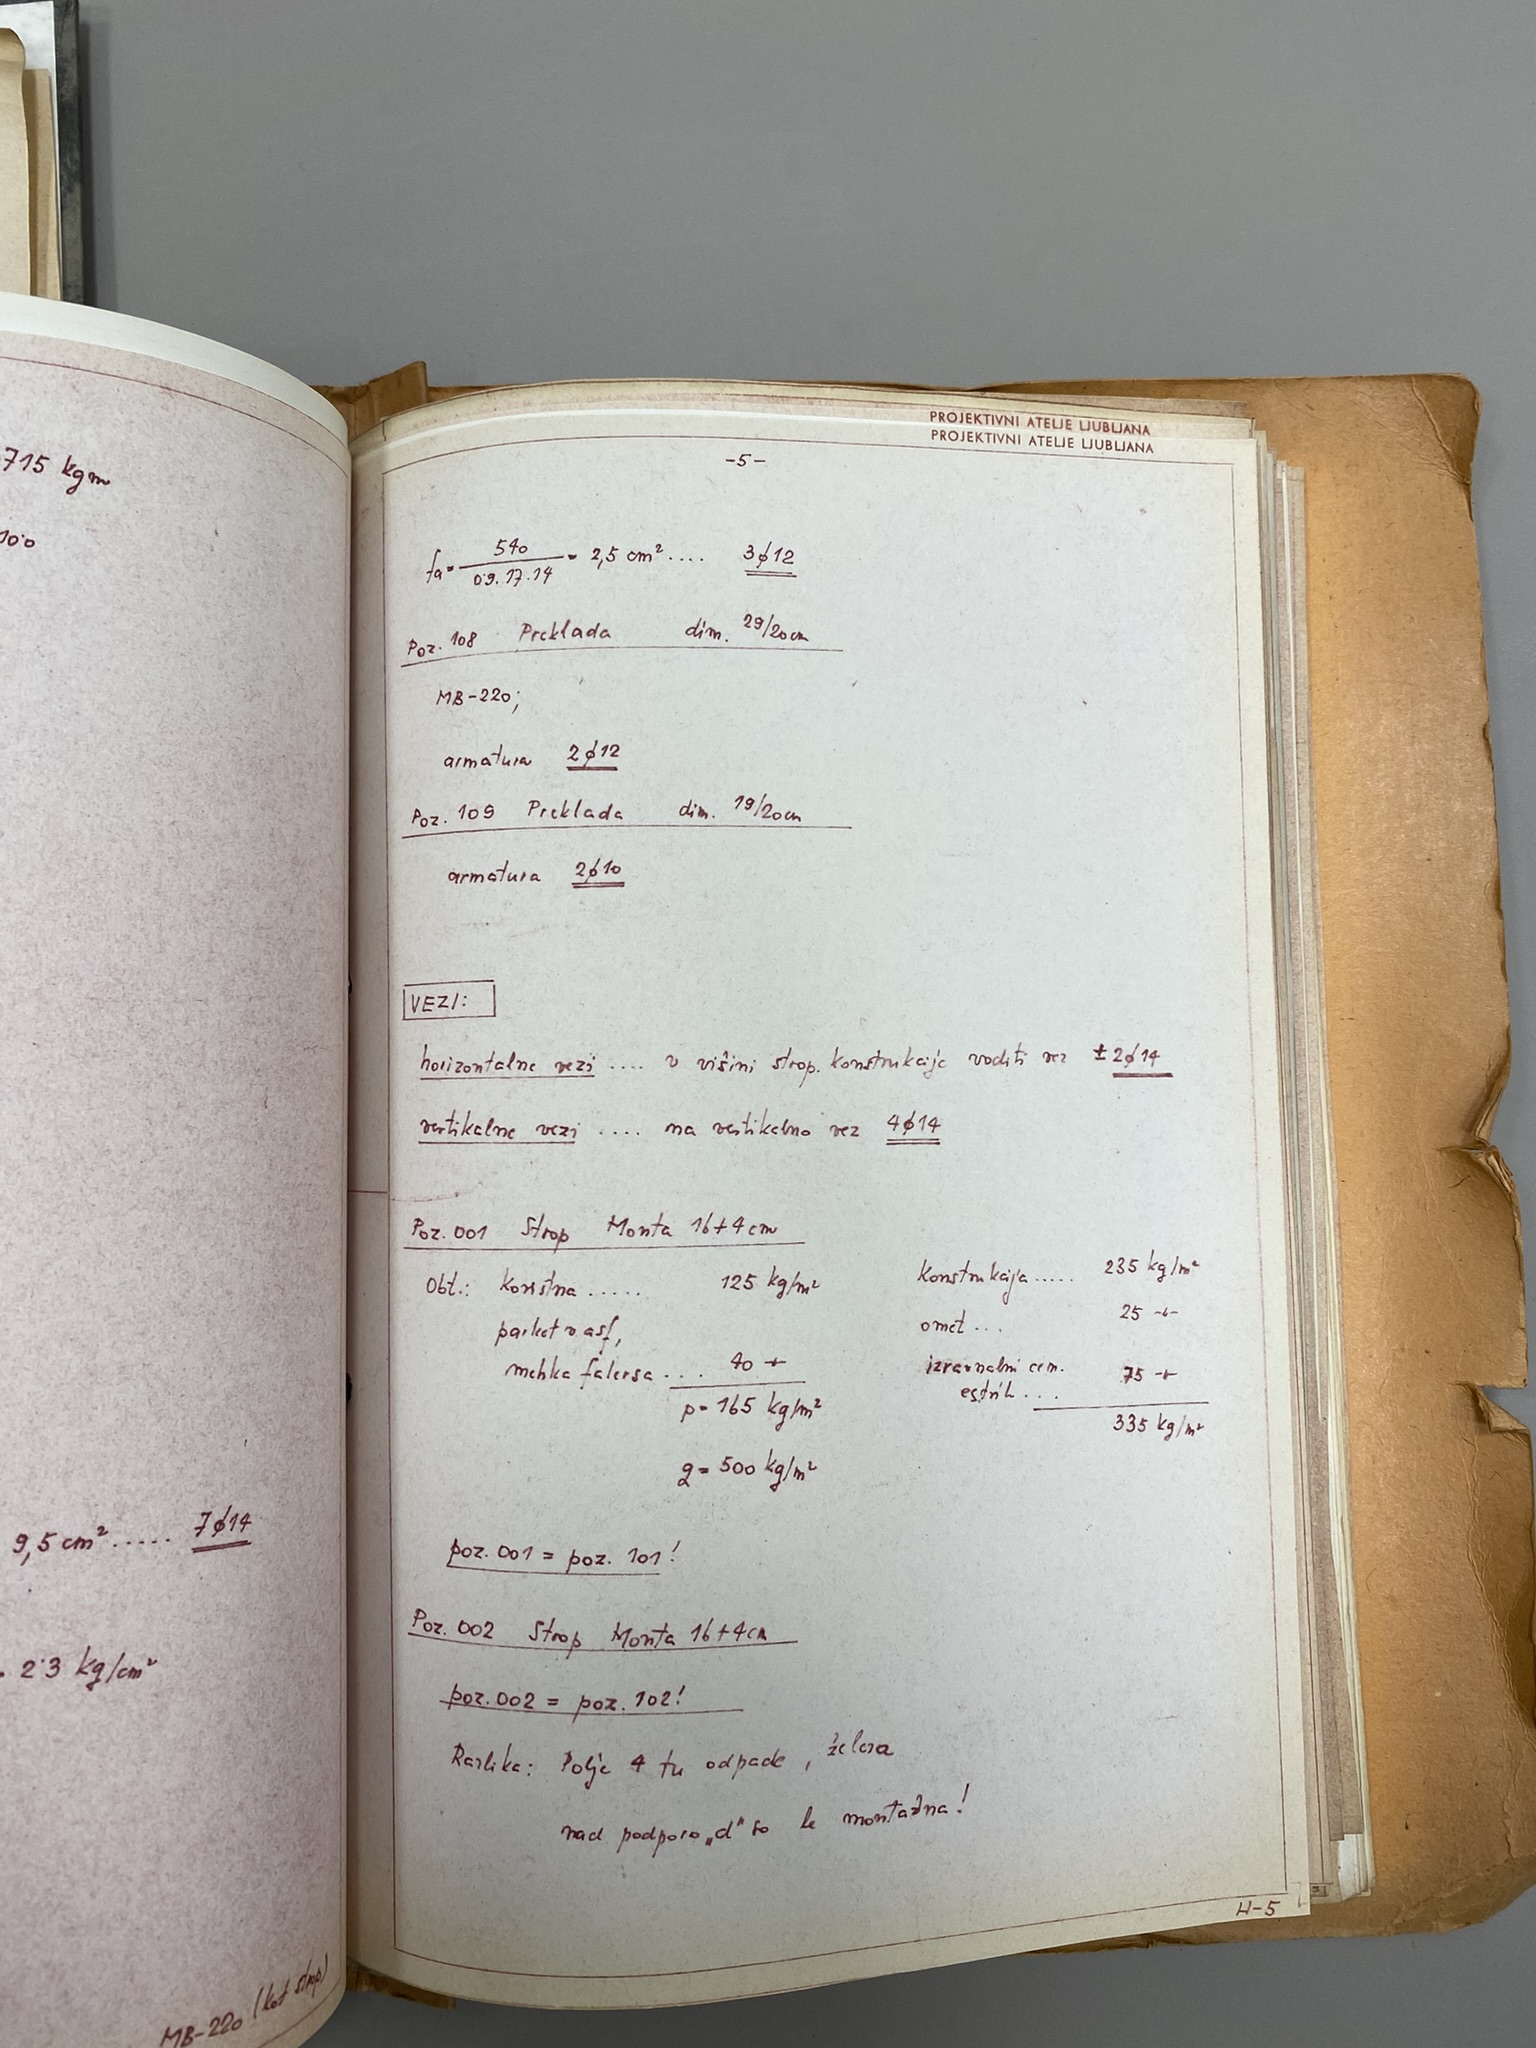 715 kgm
100
9,5 cm² ..... 7ϕ14
2·3 kg/cm²
MB-220 (kot strop)
PROJEKTIVNI ATELJE LJUBLJANA
PROJEKTIVNI ATELJE LJUBLJANA
-5-
fa = 540 / 0·9.17.14 = 2,5 cm² .... 3ϕ12
Poz. 108 Preklada dim. 29/20cm
MB-220;
armatura 2ϕ12
Poz. 109 Preklada dim. 19/20cm
armatura 2ϕ10
VEZI:
horizontalne vezi .... v višini strop. konstrukcije voditi vez ± 2ϕ14
vertikalne vezi .... na vertikalno vez 4ϕ14
Poz. 001 Strop Monta 16+4cm
Obt.: koristna ..... 125 kg/m²
parket v asf,
mehka falersa ... 40 -"-
p = 165 kg/m²
g = 500 kg/m²
Konstrukcija ..... 235 kg/m²
omet ... 25 -"-
izravnalni cem.
estrih ... 75 -"-
335 kg/m²
poz. 001 = poz. 101!
Poz. 002 Strop Monta 16+4cm
poz. 002 = poz. 102!
Razlika: Polje 4 tu odpade, železa
nad podporo „d" so le montažna!
H-5